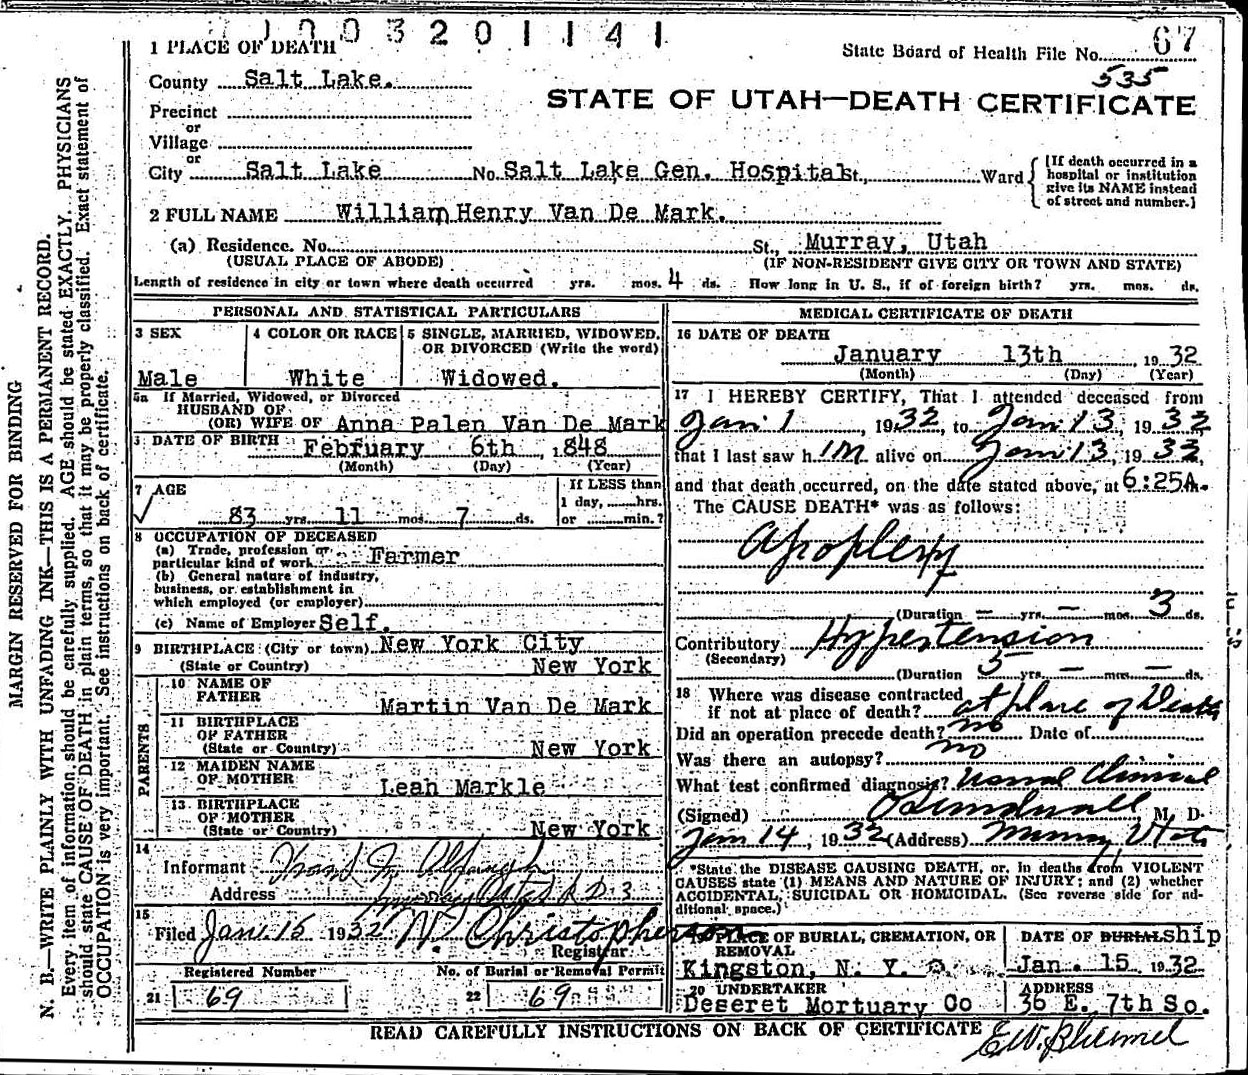 1003201141
1 PLACE OF DEATH
State Board of Health File No. 67
535
County Salt Lake.
STATE OF UTAH—DEATH CERTIFICATE
Precinct
or
Village
or
City Salt Lake No. Salt Lake Gen. Hospital St., Ward
[If death occurred in a
hospital or institution
give its NAME instead
of street and number.]
2 FULL NAME William Henry Van De Mark.
(a) Residence. No. St., Murray, Utah
(USUAL PLACE OF ABODE) (IF NON-RESIDENT GIVE CITY OR TOWN AND STATE)
Length of residence in city or town where death occurred yrs. mos. 4 ds. How long in U. S., if of foreign birth? yrs. mos. ds.
PERSONAL AND STATISTICAL PARTICULARS
3 SEX
Male
4 COLOR OR RACE
White
5 SINGLE, MARRIED, WIDOWED,
OR DIVORCED (Write the word)
Widowed.
5a If Married, Widowed, or Divorced
HUSBAND OF
(OR) WIFE OF Anna Palen Van De Mark
DATE OF BIRTH February 6th, 1848
(Month) (Day) (Year)
7 AGE
83 yrs. 11 mos. 7 ds.
If LESS than
1 day, hrs.
or min.?
8 OCCUPATION OF DECEASED
(a) Trade, profession or
particular kind of work Farmer
(b) General nature of industry,
business, or establishment in
which employed (or employer)
(c) Name of Employer Self.
9 BIRTHPLACE (City or town) New York City
(State or Country) New York
PARENTS
10 NAME OF
FATHER Martin Van De Mark
11 BIRTHPLACE
OF FATHER
(State or Country) New York
12 MAIDEN NAME
OF MOTHER Leah Markle
13 BIRTHPLACE
OF MOTHER
(State or Country) New York
14
Informant
Address Murray Utah R D 3
15
Filed Jan. 15 1932 N. Christopherson
Registrar
Registered Number
21 69
No. of Burial or Removal Permit
22 69
MEDICAL CERTIFICATE OF DEATH
16 DATE OF DEATH
January 13th, 1932
(Month) (Day) (Year)
17 I HEREBY CERTIFY, That I attended deceased from
Jan 1, 1932, to Jan 13, 1932
that I last saw h im alive on Jan 13, 1932,
and that death occurred, on the date stated above, at 6:25A.
The CAUSE DEATH* was as follows:
Apoplexy
(Duration – yrs. – mos. 3 ds.
Contributory Hypertension
(Secondary)
(Duration 5 yrs. – mos. – ds.
18 Where was disease contracted
if not at place of death? at place of Death
Did an operation precede death? no Date of
Was there an autopsy? no
What test confirmed diagnosis? Usual Clinical
(Signed) Sundwall M. D.
Jan 14, 1932 (Address) Murray Utah
*State the DISEASE CAUSING DEATH, or, in deaths from VIOLENT
CAUSES state (1) MEANS AND NATURE OF INJURY; and (2) whether
ACCIDENTAL, SUICIDAL OR HOMICIDAL. (See reverse side for ad-
ditional space.)
19 PLACE OF BURIAL, CREMATION, OR
REMOVAL
Kingston, N. Y.
DATE OF BURIAL ship
Jan. 15 1932
20 UNDERTAKER
Deseret Mortuary Co
ADDRESS
36 E. 7th So.
READ CAREFULLY INSTRUCTIONS ON BACK OF CERTIFICATE
MARGIN RESERVED FOR BINDING
N. B.—WRITE PLAINLY WITH UNFADING INK—THIS IS A PERMANENT RECORD.
Every item of information should be carefully supplied. AGE should be stated EXACTLY. PHYSICIANS
should state CAUSE OF DEATH in plain terms, so that it may be properly classified. Exact statement of
OCCUPATION is very important. See instructions on back of certificate.